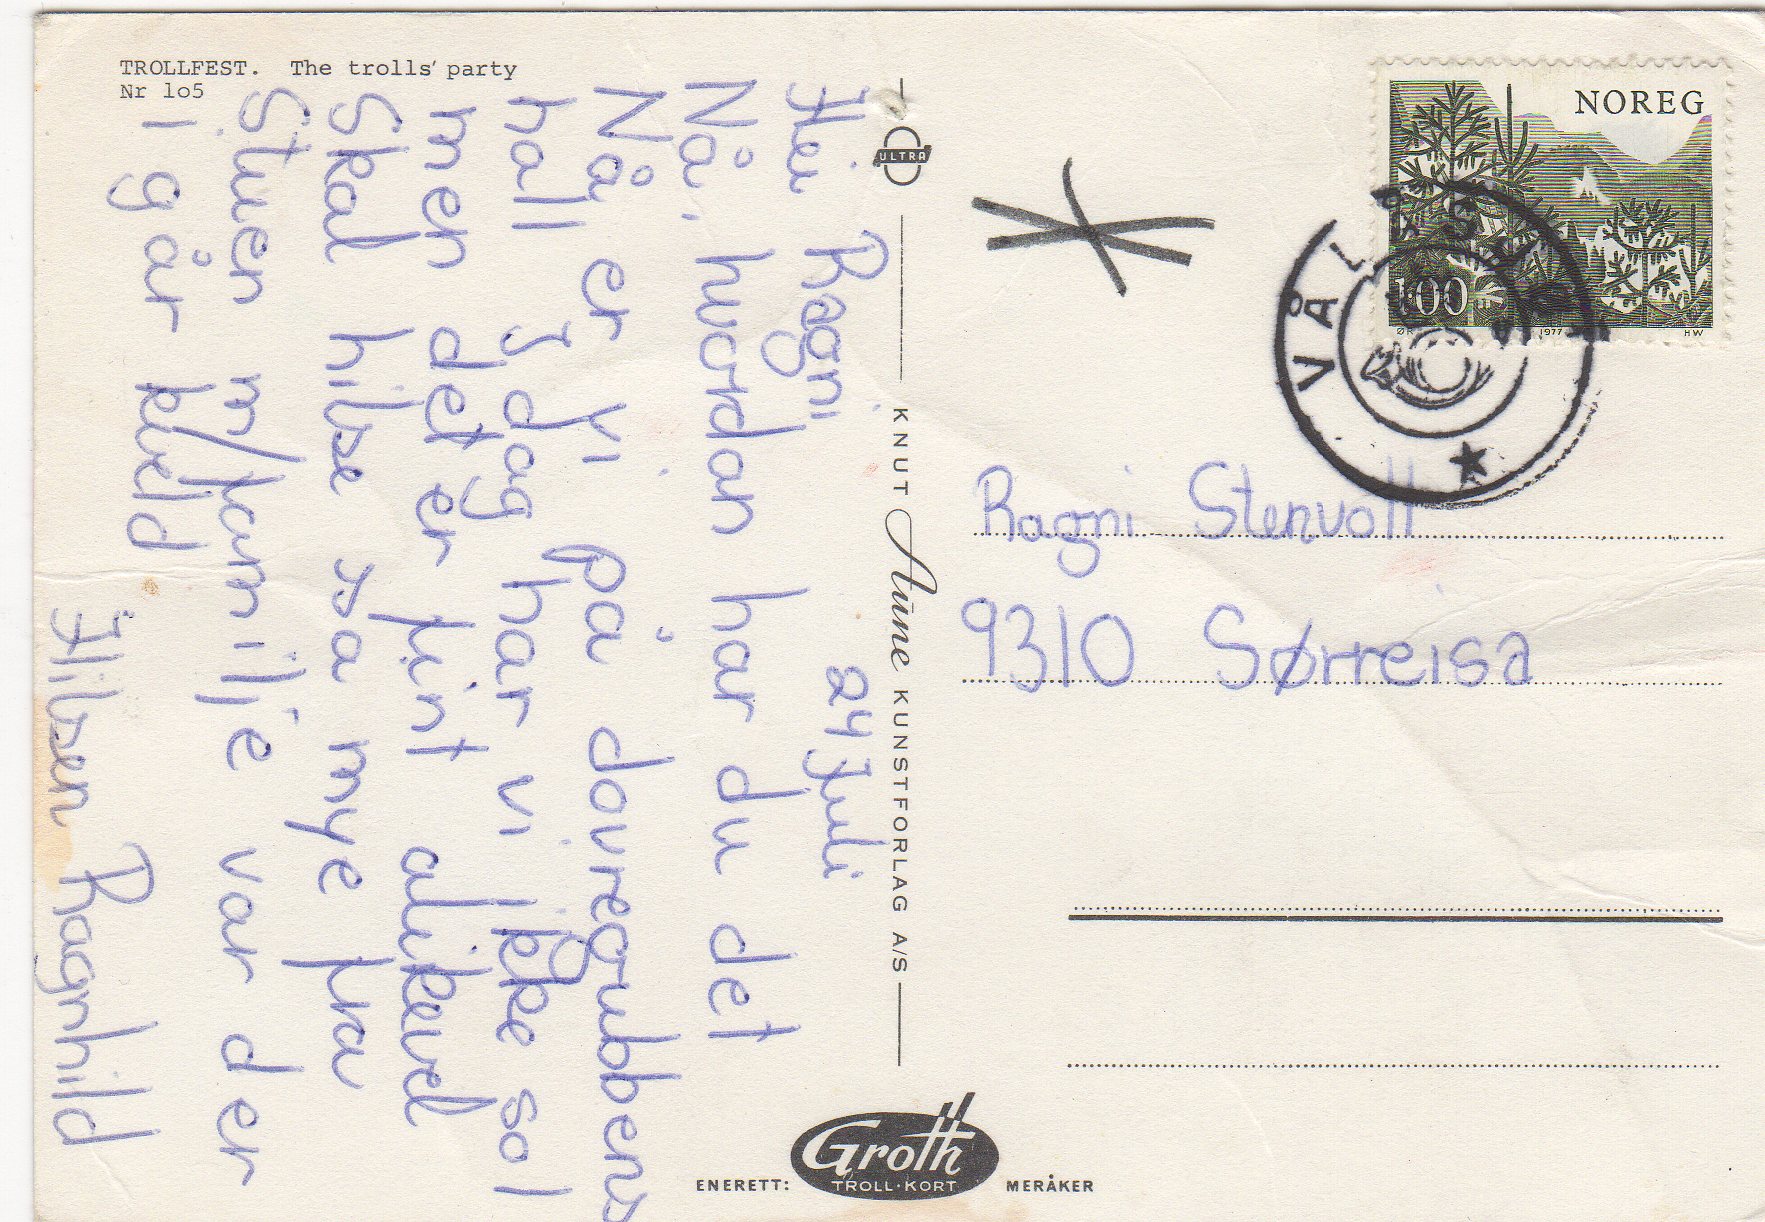 TROLLFEST. The trolls' party
Nr 1o5
24 Juli
Hei Ragni
Nå, hvordan har du det
Nå er vi på dovregubbens
hall I dag har vi ikke sol
men det er fint alikevel
Skal hilse så mye fra
Stuen m/familje var der
i går kveld
Hilsen Ragnhild
ULTRA
KNUT Aune KUNSTFORLAG A/S
ENERETT: Groth TROLL-KORT MERÅKER
NOREG
100
1977 HW
VÅL
Ragni Stenvoll
9310 Sørreisa